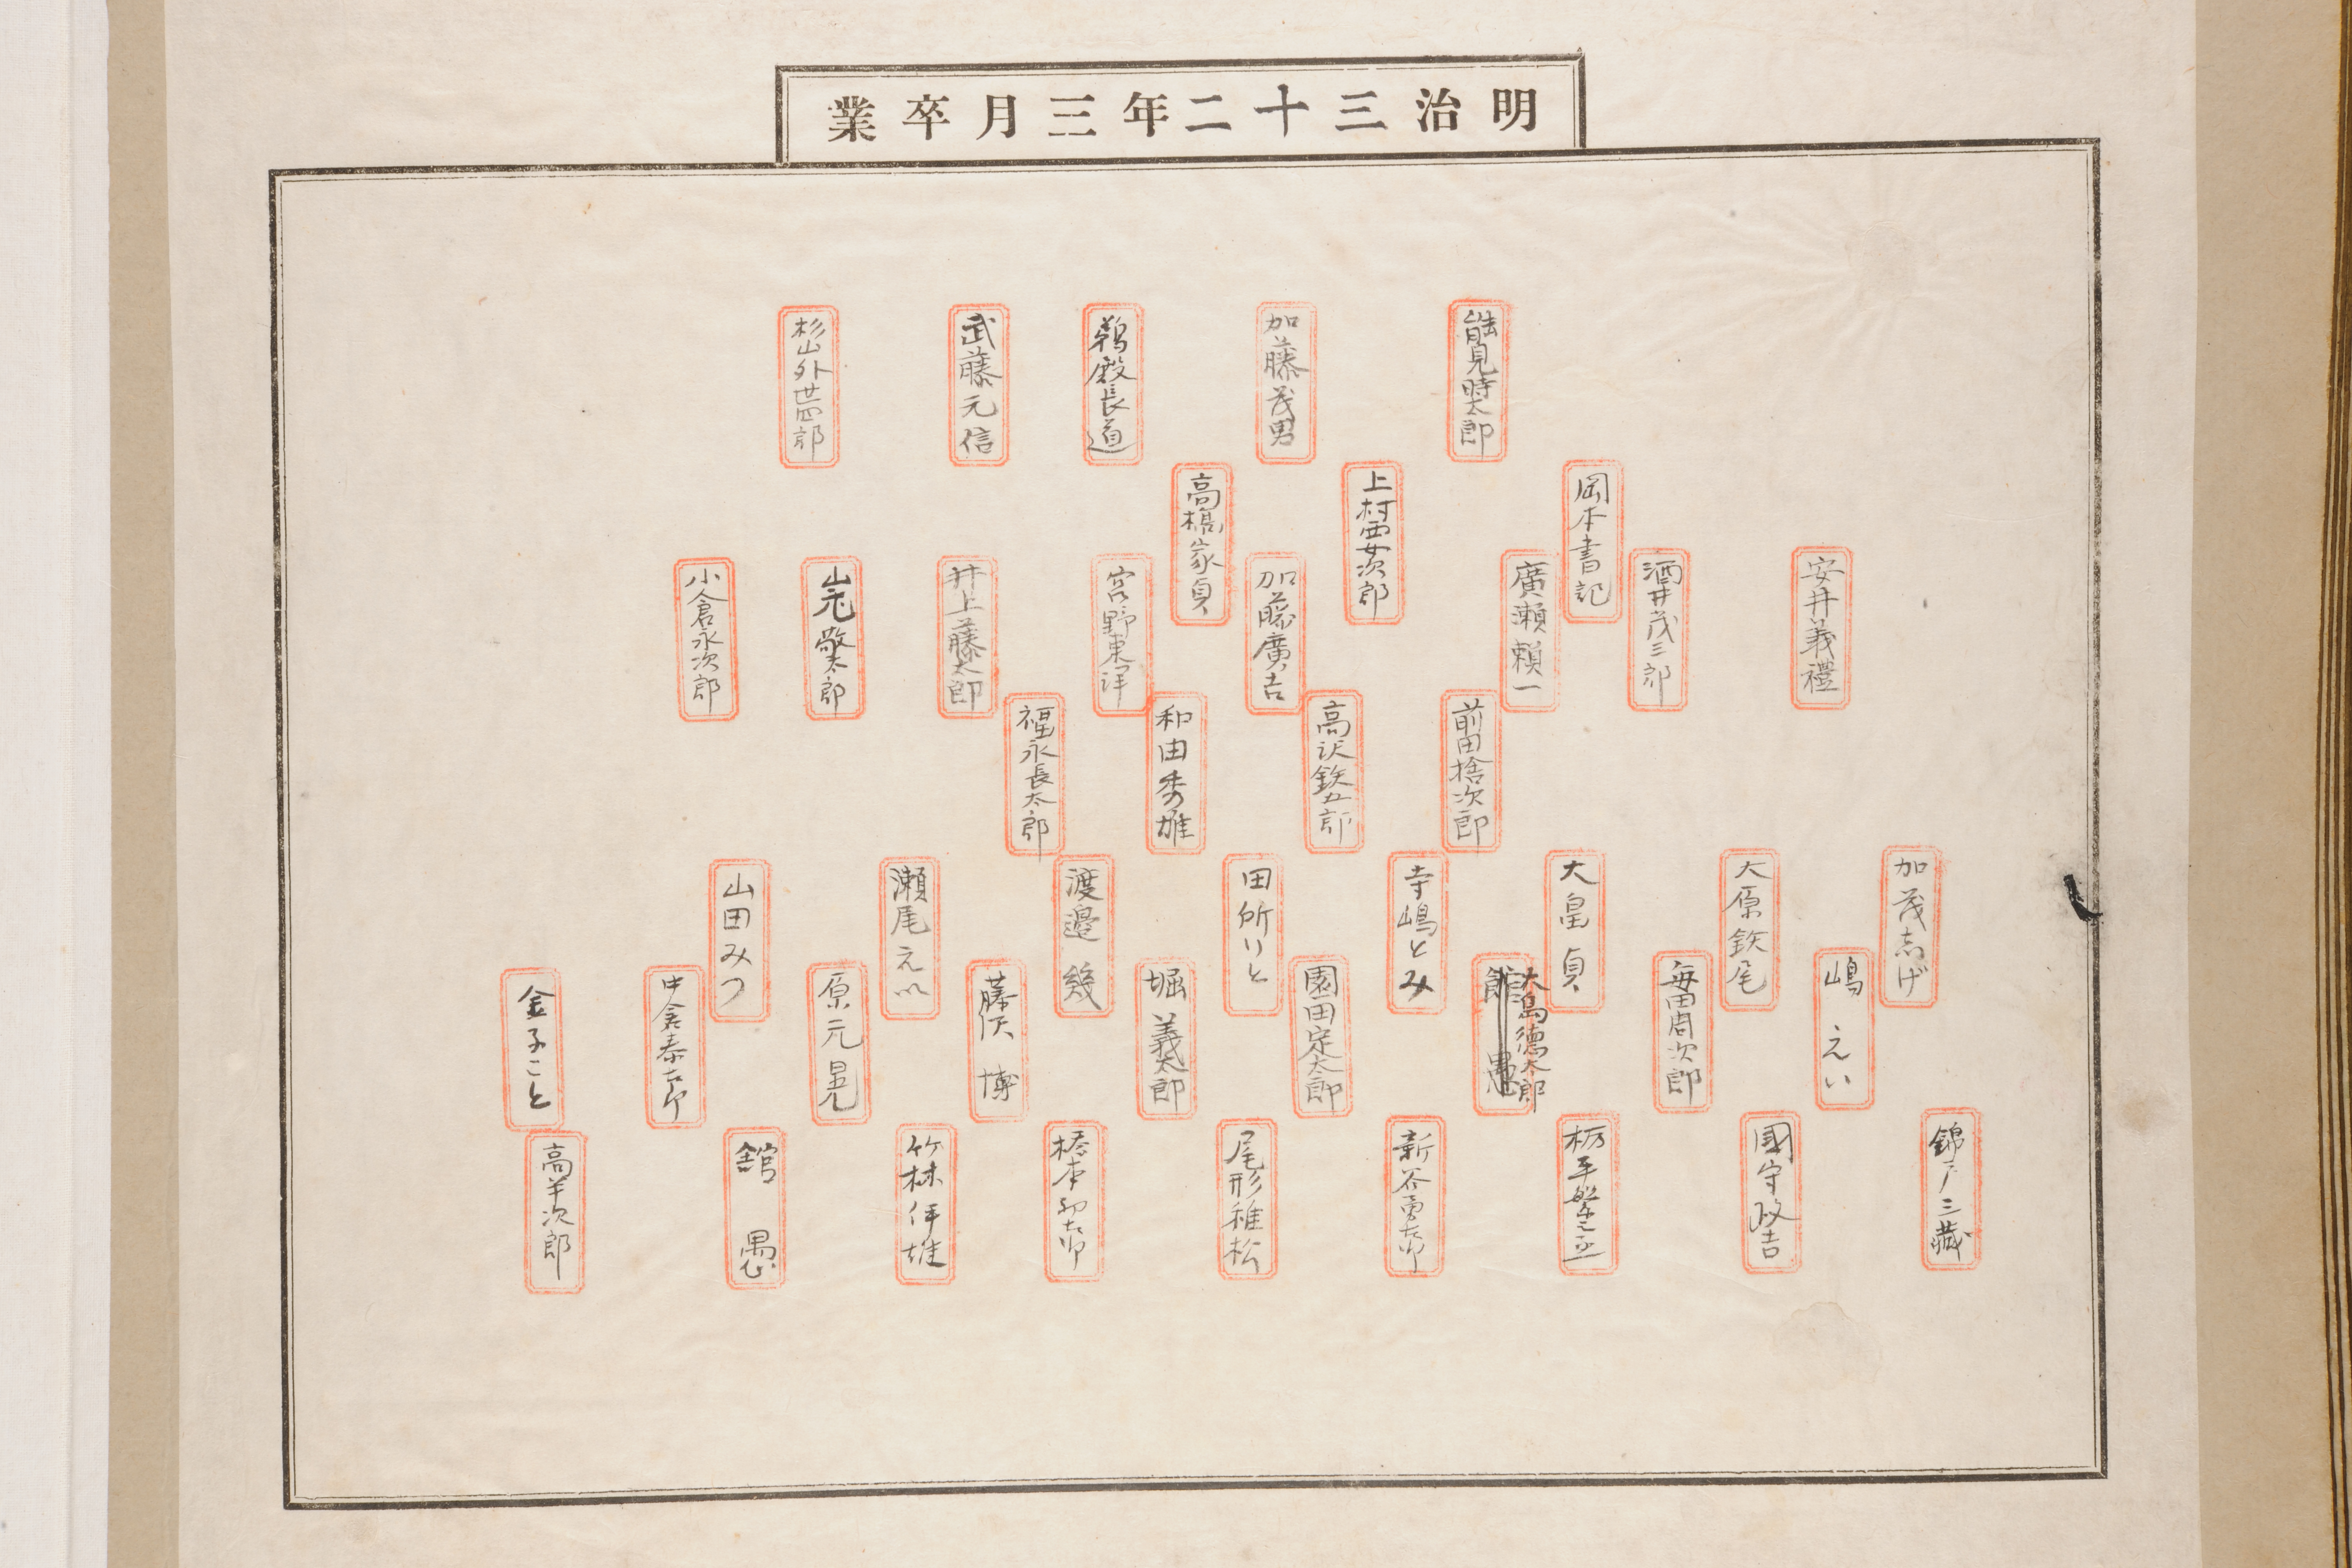 明治三十二年三月卒業
能見時太郎
加藤茂男
鵜殿長道
武藤元信
杉山外世四郎
岡本書記
上村酉次郎
高橋家貞
安井義禮
酒井茂三郎
廣瀬頼一
加藤廣吉
宮野東洋
井上藤太郎
敬太郎
小倉永次郎
前田捨次郎
高沢鉄五郎
和田秀雄
福永長太郎
加茂志げ
大原鉄尾
大畠貞
寺嶋とみ
田所りと
渡邉幾
瀬尾えい
山田みつ
嶋えい
毎田周次郎
大島徳太郎
館愚
園田定太郎
堀義太郎
藤沢博
原元晃
中倉泰吉郎
金子こと
錦戸三蔵
國守政吉
栃平
新谷勇
尾形稚松
橋本
竹林伊雄
舘愚
高羊次郎